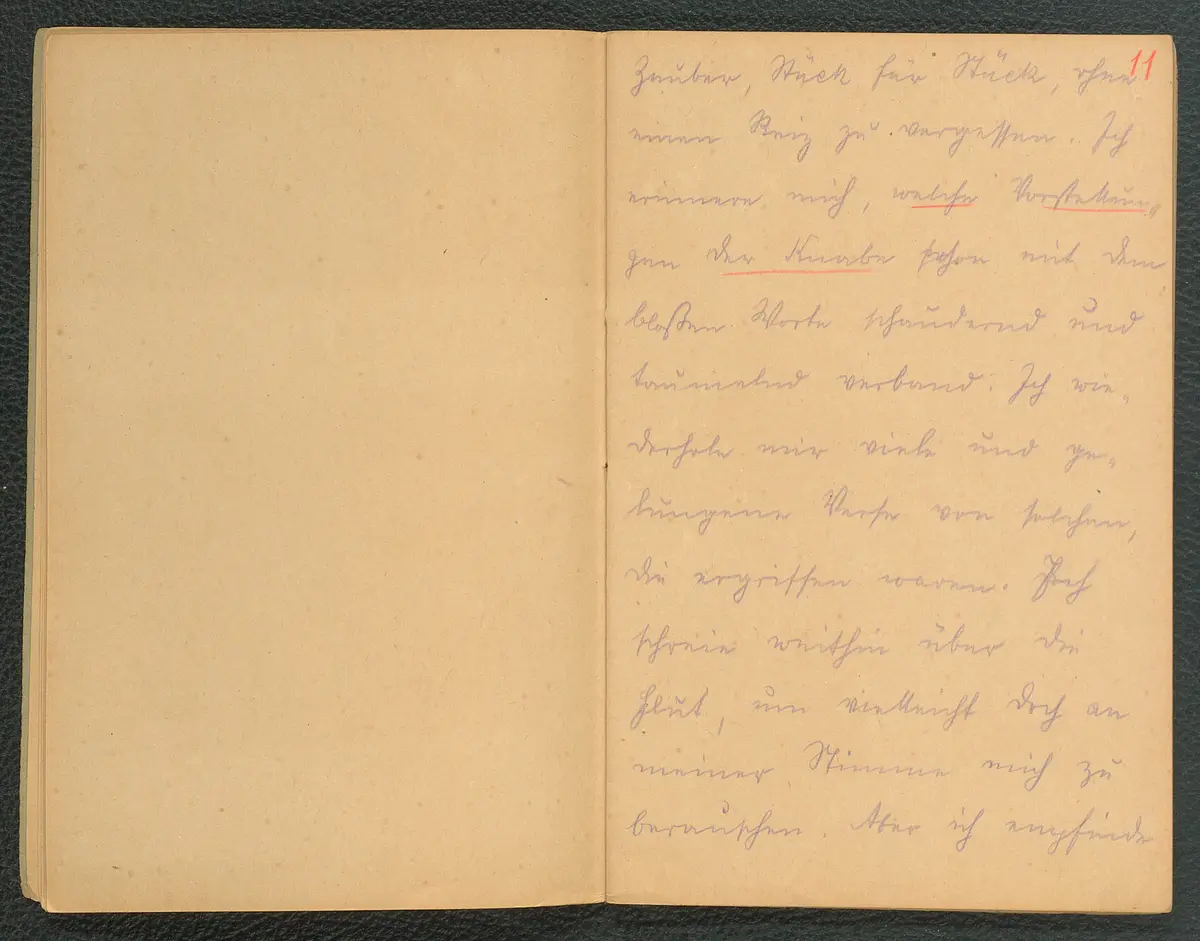 11
Zauber, Stück für Stück, ohne
einen Reiz zu vergessen. Ich
erinnere mich, welche Vorstellun„
gen der Knabe schon mit dem
bloßen Worte schaudernd und
taumelnd verband. Ich wie„
derhole mir viele und ge„
lungene Verse von solchen,
die ergriffen waren. Ich
schreie weithin über die
Flut, um vielleicht doch an
meiner Stimme mich zu
berauschen. Aber ich empfinde